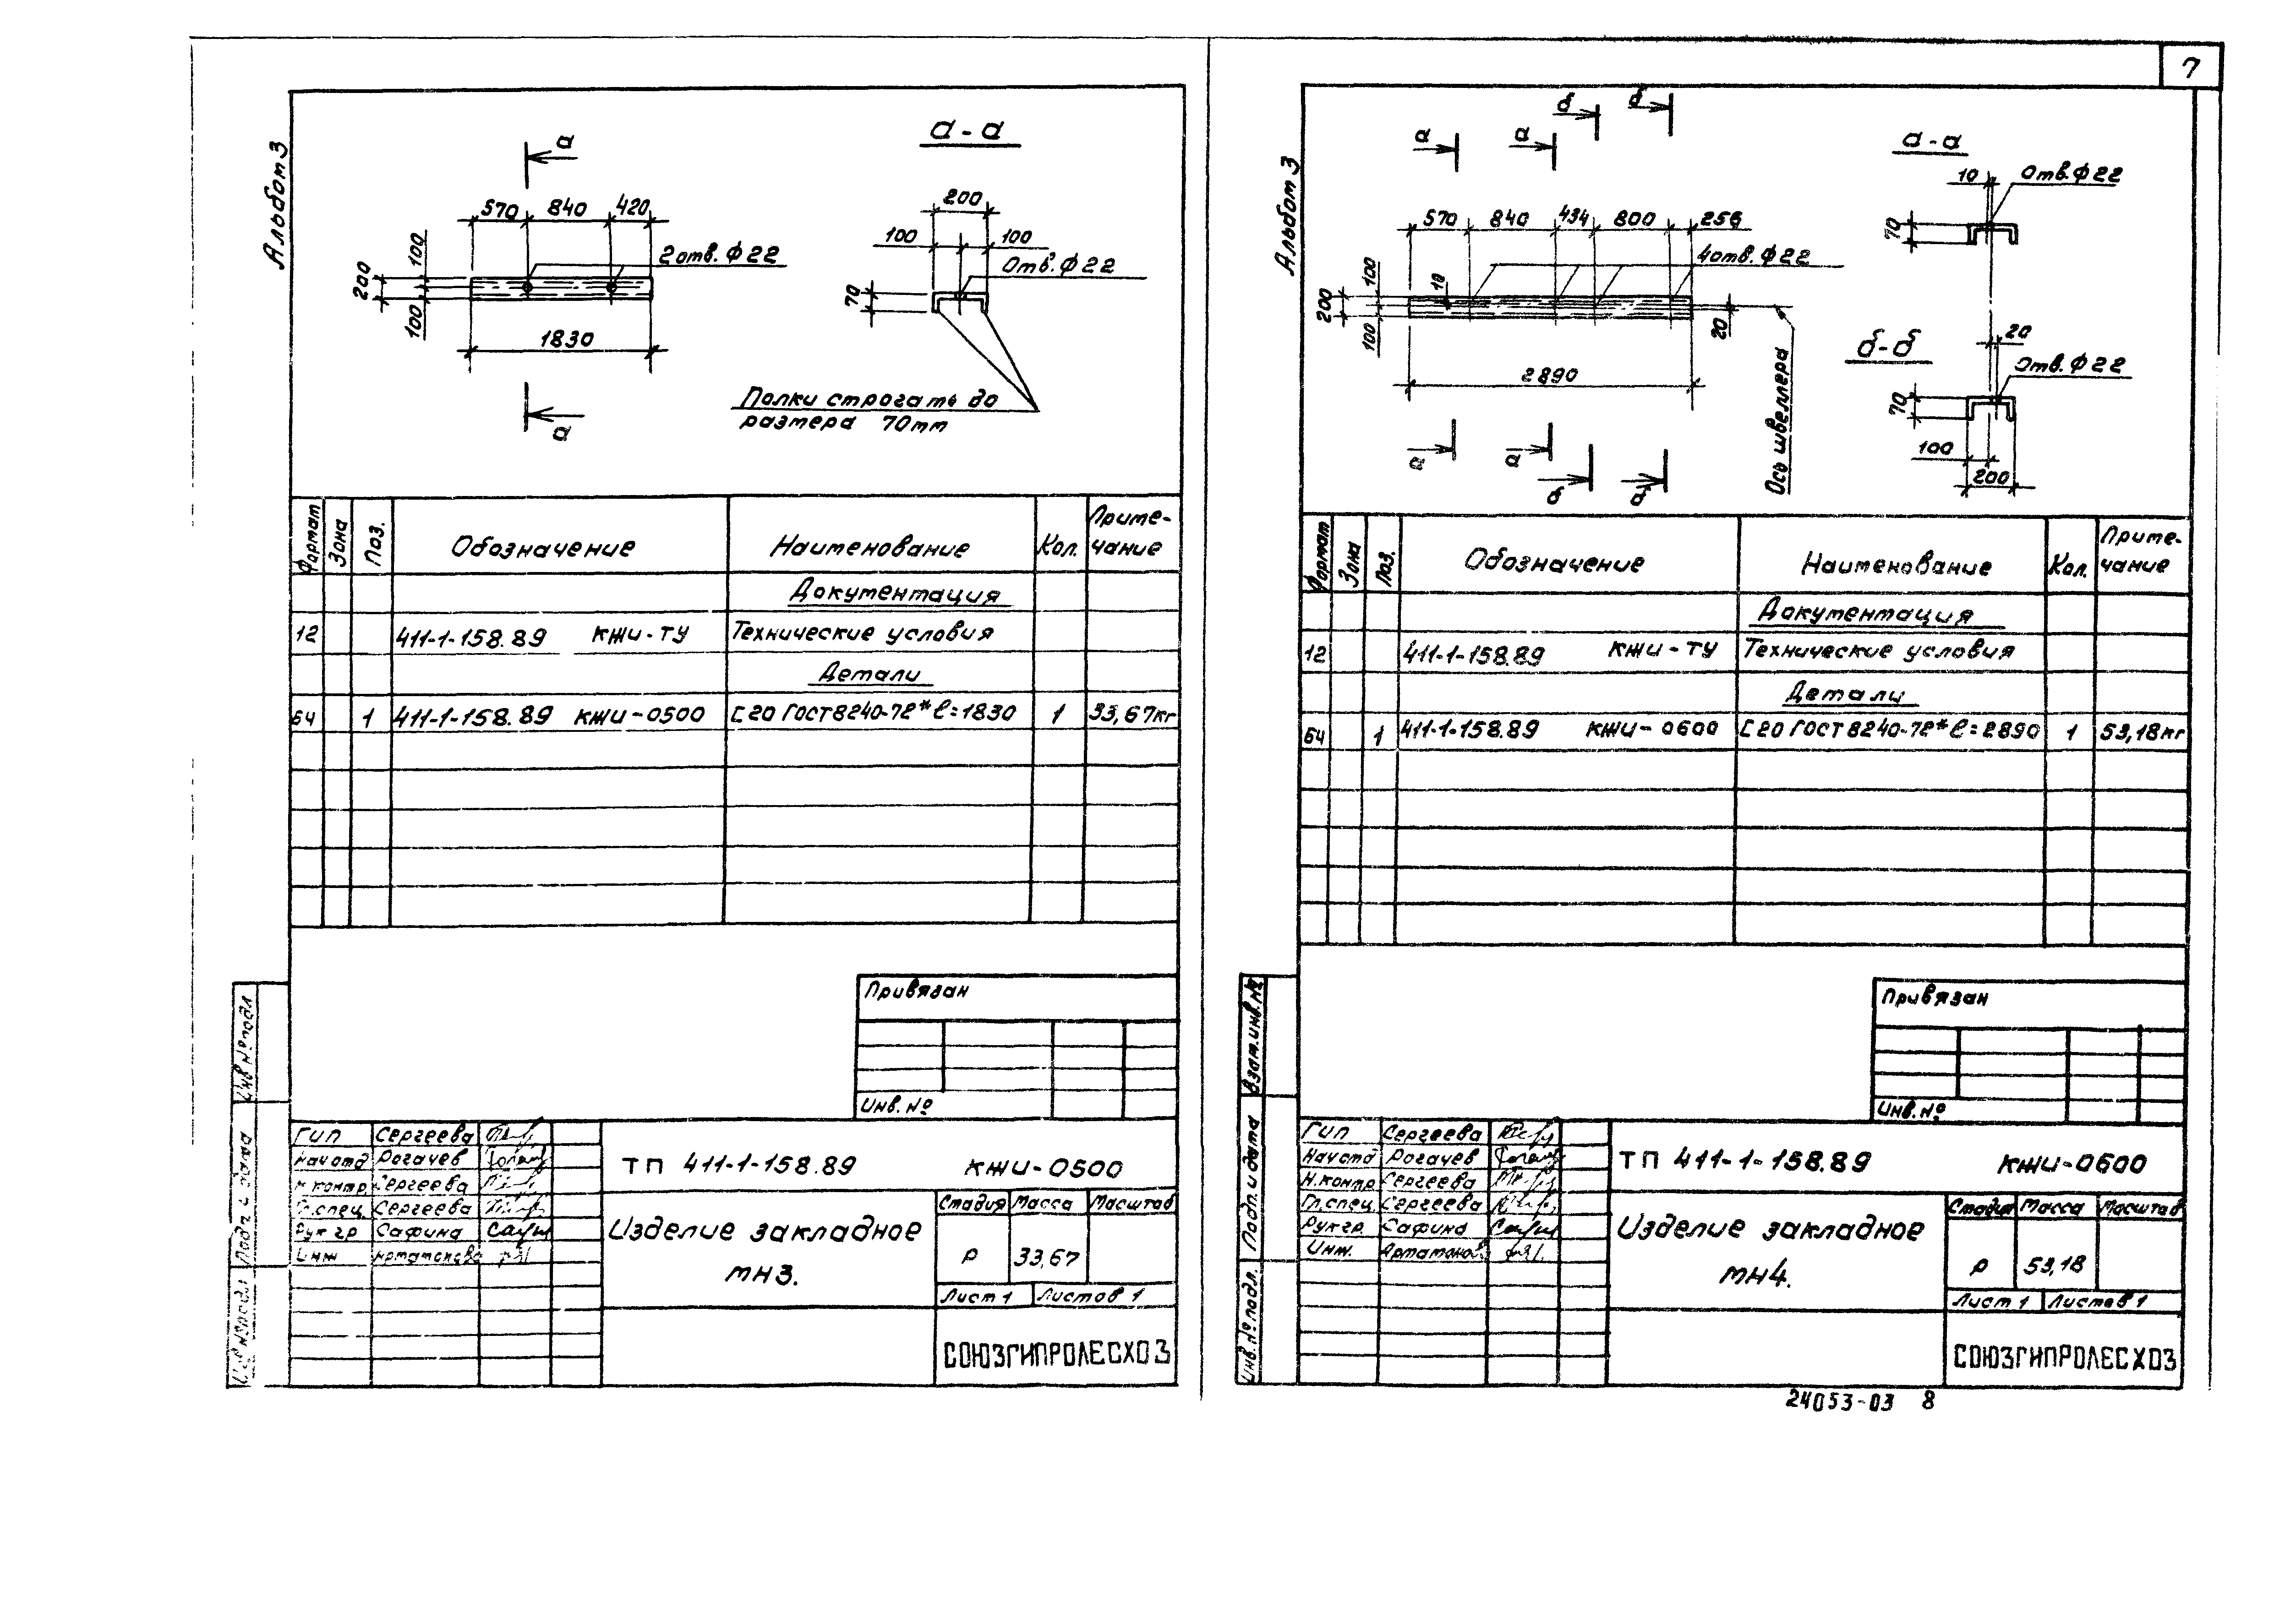 7
Альбом 3
а
а-а
570 840 420
200
100 100
2 отв. ф22
Отв. ф22
200
100
100
70
1830
Полки строгать до
размера 70мм
а
Формат Зона Поз. Обозначение Наименование Кол. Приме-
чание
Документация
12 411-1-158.89 КЖИ-ТУ Технические условия
Детали
БЧ 1 411-1-158.89 КЖИ-0500 [20 ГОСТ 8240-72* ℓ=1830 1 33,67кг
Привязан
Инв. №
Инв № подл
Подп и дата
Инв № подл
ГИП Сергеева
Нач отд Рогачев
Н контр Сергеева
Гл. спец Сергеева
Рук гр Сафина
Инж
ТП 411-1-158.89 КЖИ-0500
Изделие закладное
МН3.
Стадия Масса Масштаб
Р 33,67
Лист 1 Листов 1
СОЮЗГИПРОЛЕСХОЗ
Альбом 3
а а б б
а-а
570 840 434 800 256
10 Отв. ф22
70
4 отв. ф22
200
100
100
10
20
2890
Ось швеллера
б-б
20
Отв. ф22
70
100
200
а а б б
Формат Зона Поз. Обозначение Наименование Кол. Приме-
чание
Документация
12 411-1-158.89 КЖИ-ТУ Технические условия
Детали
БЧ 1 411-1-158.89 КЖИ-0600 [20 ГОСТ 8240-72* ℓ=2890 1 53,18кг
Привязан
Инв. №
Взам. инв. №
Подп. и дата
Инв. № подл.
ГИП Сергеева
Нач отд Рогачев
Н. контр Сергеева
Гл. спец. Сергеева
Рук гр. Сафина
Инж.
ТП 411-1-158.89 КЖИ-0600
Изделие закладное
МН4.
Стадия Масса Масштаб
Р 53,18
Лист 1 Листов 1
СОЮЗГИПРОЛЕСХОЗ
24053-03 8